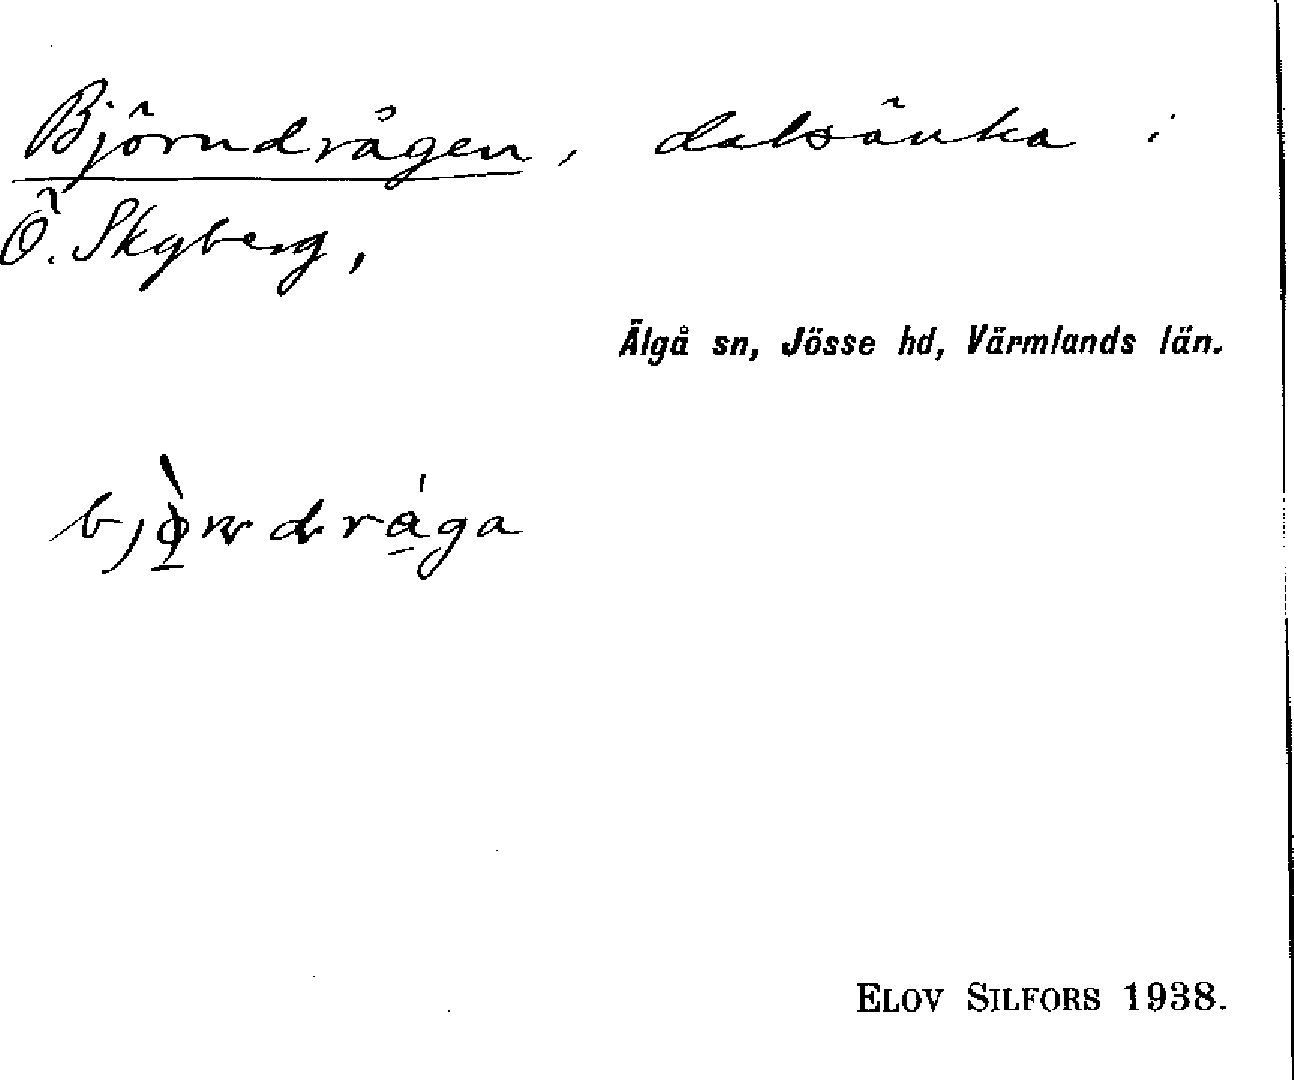 Björndrågen, dalsänka i
Ö. Skyberg,
Älgå sn, Jösse hd, Värmlands län.
bjò̠ṇḍrága
ELOV SILFORS 1938.